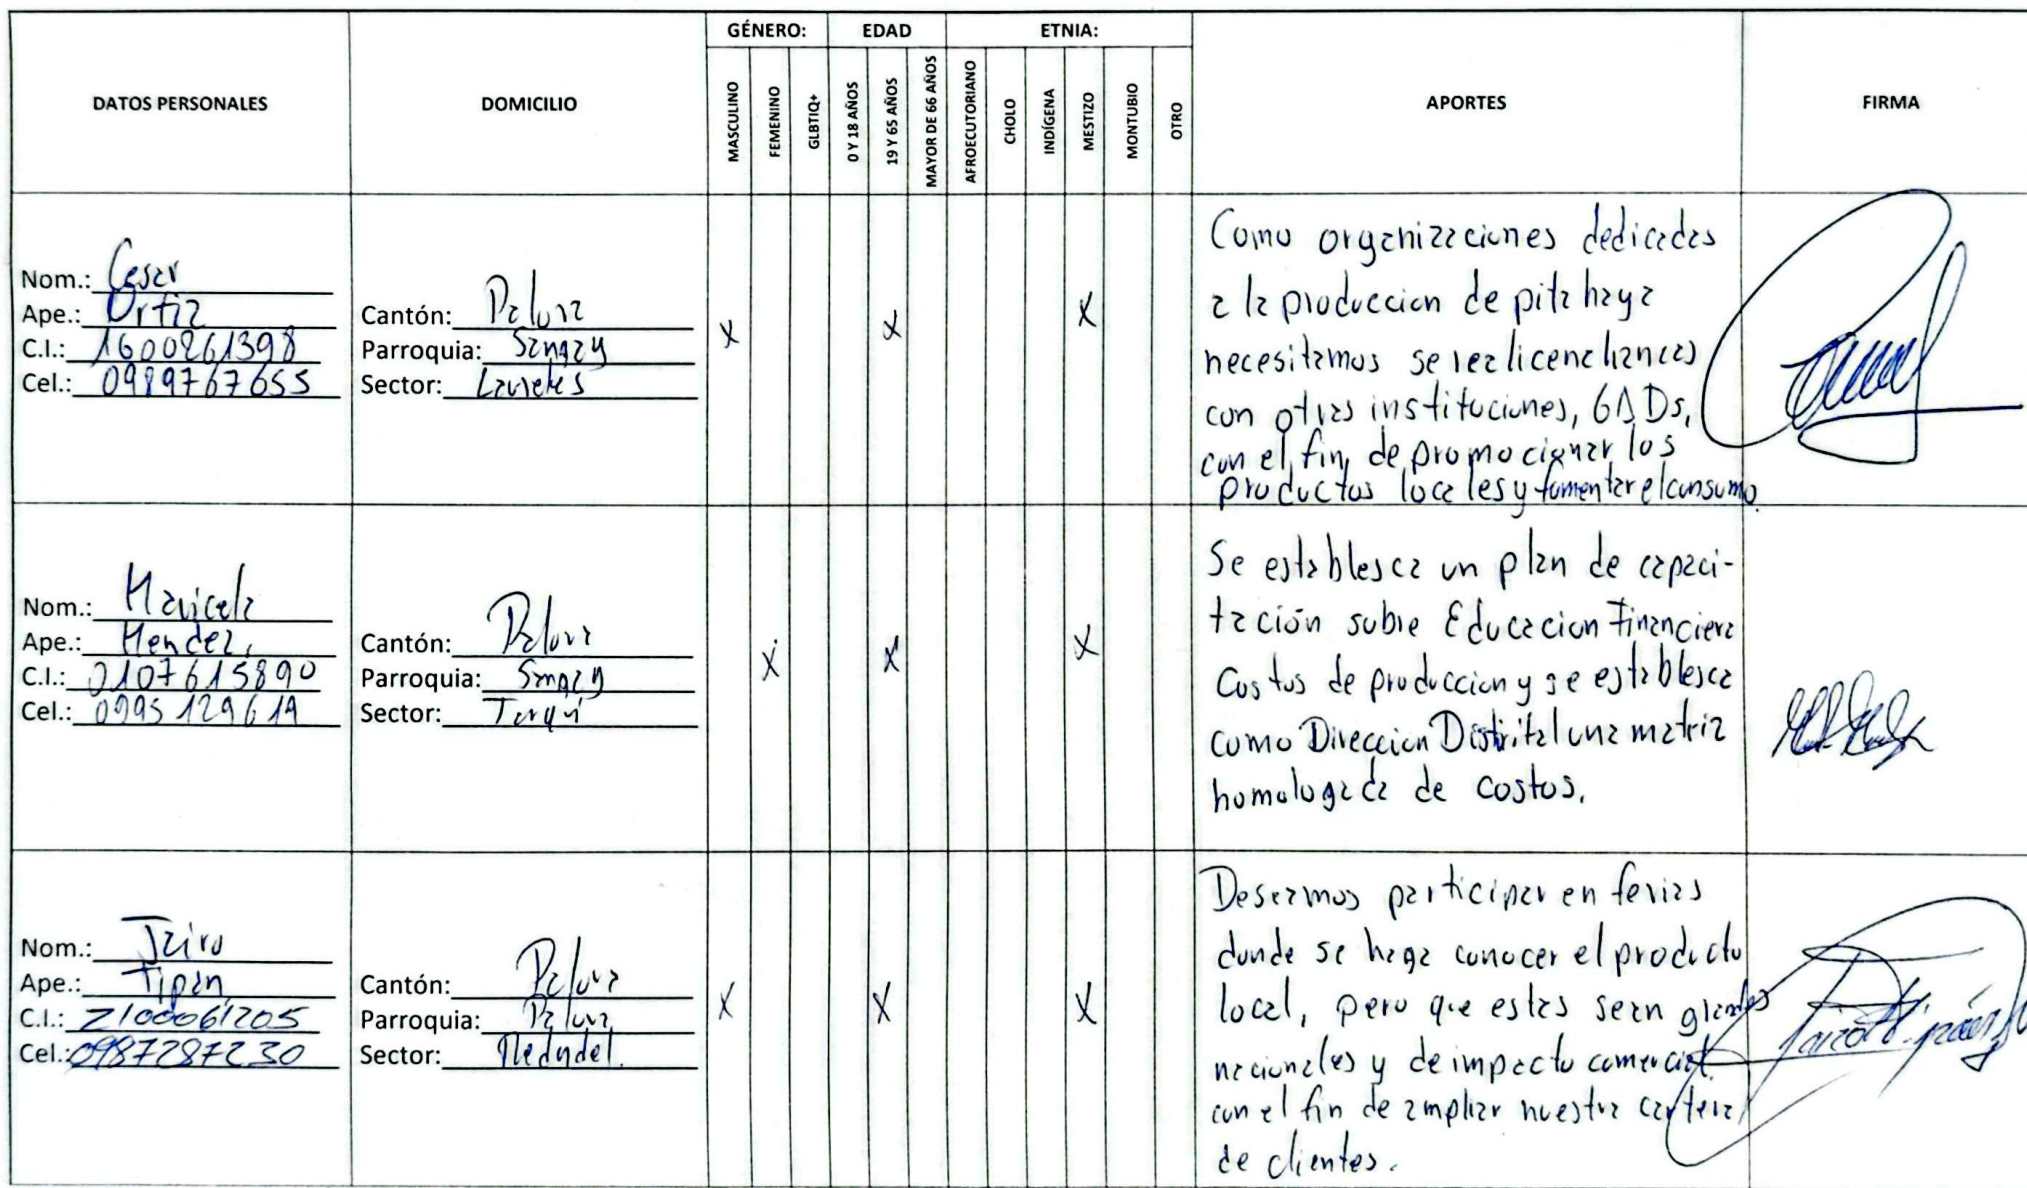 GÉNERO: EDAD ETNIA:
DATOS PERSONALES DOMICILIO MASCULINO FEMENINO GLBTIQ+ 0 Y 18 AÑOS 19 Y 65 AÑOS MAYOR DE 66 AÑOS AFROECUTORIANO CHOLO INDÍGENA MESTIZO MONTUBIO OTRO APORTES FIRMA
Nom.: Cesar
Ape.: Ortiz
C.I.: 1600261398
Cel.: 0989767655
Cantón: Palora
Parroquia: Sangay
Sector: Laureles
X X X
Como organizaciones dedicadas
a la produccion de pitahaya
necesitamos se realicen alianzas
con otras instituciones, GADs,
con el fin de promocionar los
productos locales y fomentar el consumo.
Nom.: Maricela
Ape.: Mendez
C.I.: 0107615890
Cel.: 0995129619
Cantón: Palora
Parroquia: Sangay
Sector: Tarqui
X X X
Se establesca un plan de capaci-
tación sobre Educacion Financiera
Costos de produccion y se establesca
como Direccion Distrital una matriz
homologada de costos.
Nom.: Jairo
Ape.: Tipan
C.I.: 2100061205
Cel.: 0987287230
Cantón: Palora
Parroquia: Palora
Sector:
X X X
Deseamos participar en ferias
donde se haga conocer el producto
local, pero que estas sean grandes
nacionales y de impacto comercial
con el fin de ampliar nuestra cartera
de clientes.